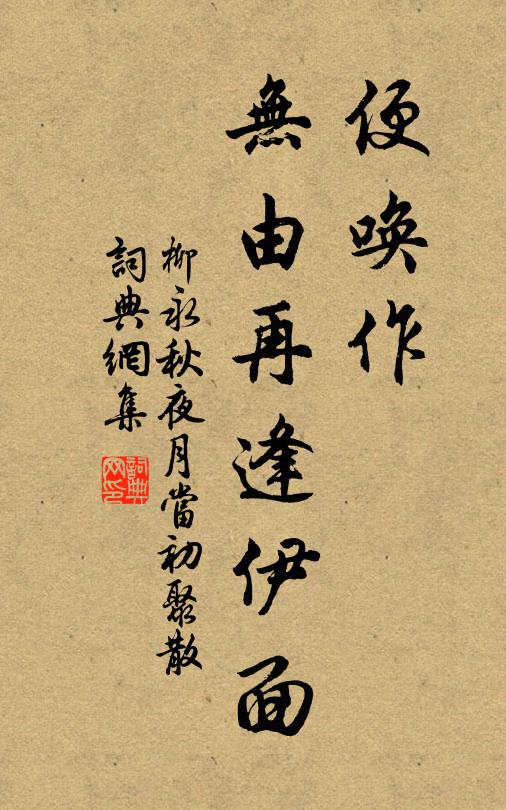 便唤作
無由再逢伊面
柳永秋夜月當初聚散
詞典網集
詞典
网印